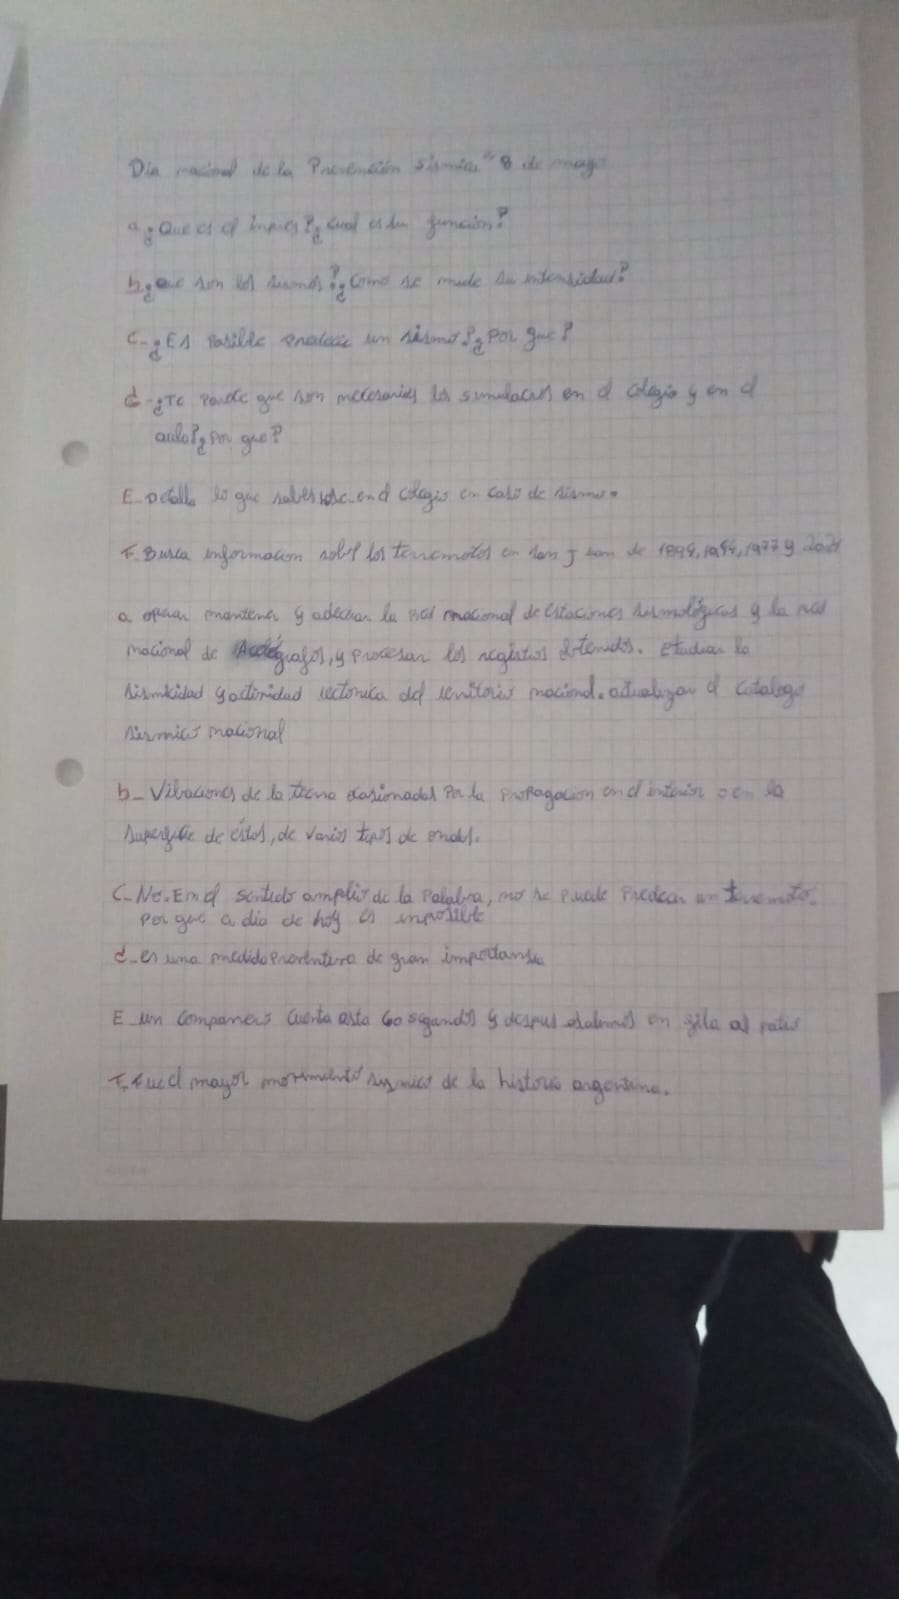 Dia nacional de la Prevención sísmica "8 de mayo
a ¿Que es el Inpres?¿cual es su función?
b ¿que son los sismos?¿Como se mide su intensidad?
C-¿Es Posible predecir un sismo?¿Por que?
d-¿Te parece que son necesarios los simulacros en el colegio y en el
aula?¿por que?
E- detalla lo que sabes en el colegio en caso de sismo.
F. Busca informacion sobre los terremotos en san juan de 1894, 1944, 1977 y 2021
a operar mantener y adecuar la red nacional de estaciones sismológicas y la red
nacional de y procesar los registros obtenidos. Estudiar la
sismicidad y actividad tectonica del territorio nacional. actualizar el catalogo
sismico nacional
b- Vibraciones de la tierra ocasionadas Por la Propagacion en el interior o en la
superficie de éstos, de varios tipos de ondas.
C- No. En el sentido amplio de la Palabra, no se puede Predecir un terremoto.
Por que a dia de hoy es imposible
d- es una medida preventiva de gran importansia
E un compañero cuenta asta 60 segundos y despus salimos en fila al patio
F. Fue el mayor movimiento sismico de la historia argentina.